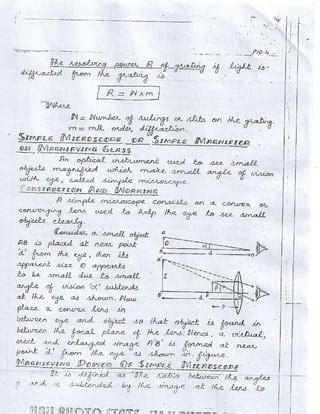 P10-4
The resolving power R of grating if light is
diffracted from the grating is
R = N x m
Where
N = Number of rulings or slits on the grating.
m = mth order diffraction.
SIMPLE MICROSCOPE OR SIMPLE MAGNIFIER
OR MAGNIFYING GLASS
An optical instrument used to see small
objects magnified which make small angle of vision
with eye, called simple microscope.
CONSTRUCTION AND WORKING
A simple microscope consists on a convex or
converging lens used to help the eye to see small
objects clearly.
Consider a small object
AB is placed at near point
'd' from the eye, then its
apparent size O appears
to be small due to small
angle of vision 'α' subtends
at the eye as shown. Now
place a convex lens in
between eye and object so that object is found in
between the focal plane of the lens. Hence, a virtual,
erect and enlarged image A'B' is formed at near
point 'd' from the eye as shown in figure.
MAGNIFYING POWER OF SIMPLE MICROSCOPE
It is defined as "The ratio between the angles
β and α subtended by the image at the lens to